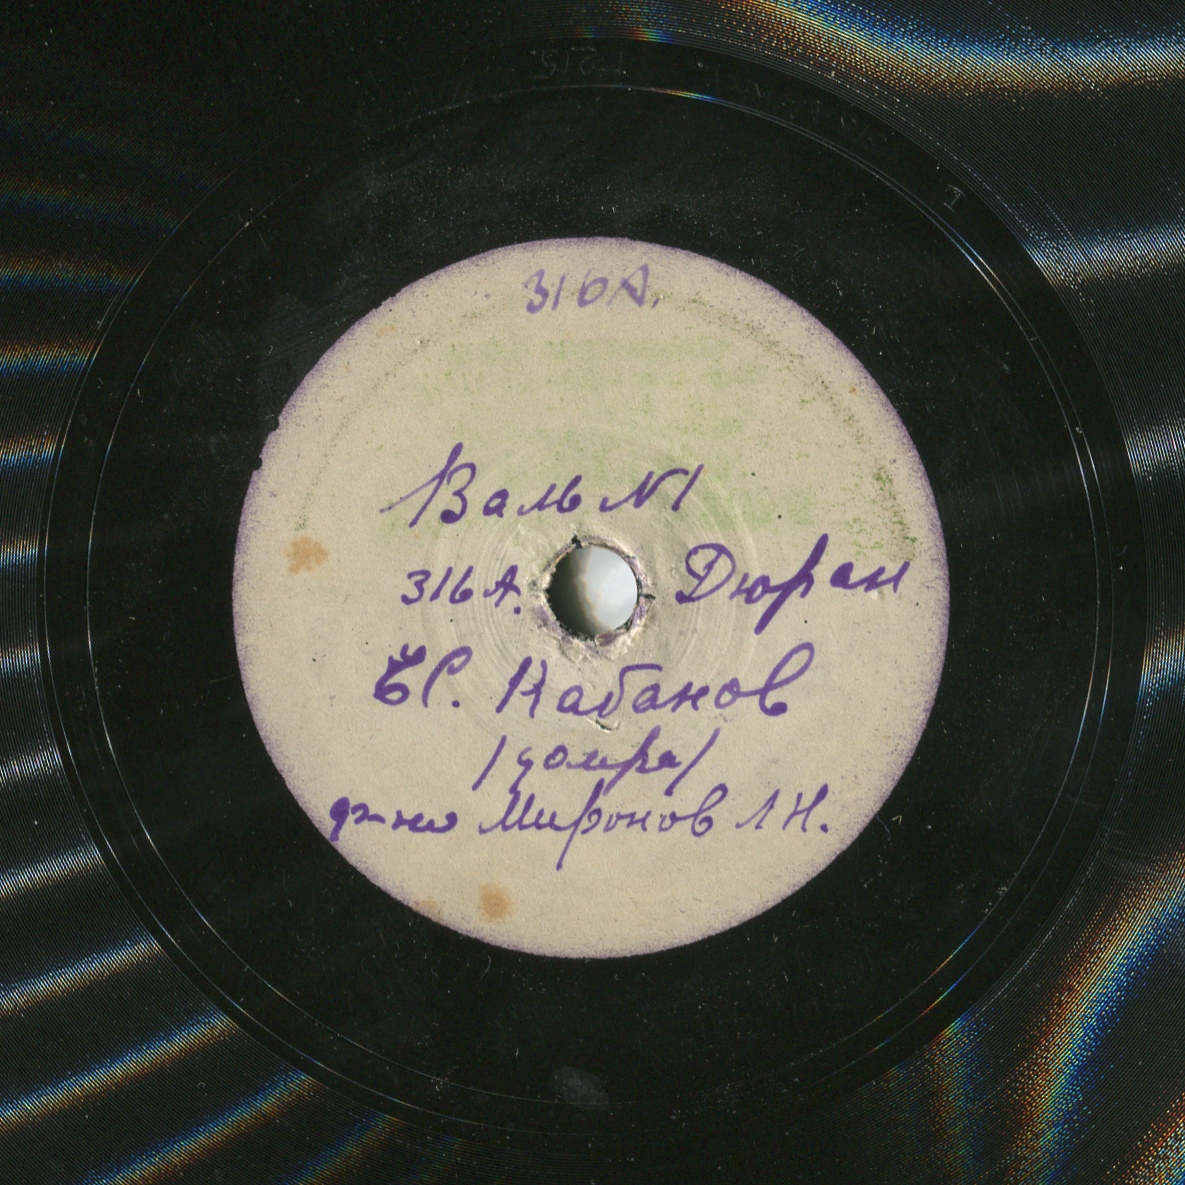 316А.
Вальс №1
316А. Дюран
С. Кабанов
/домра/
ф-но Миронов Л Н.
1